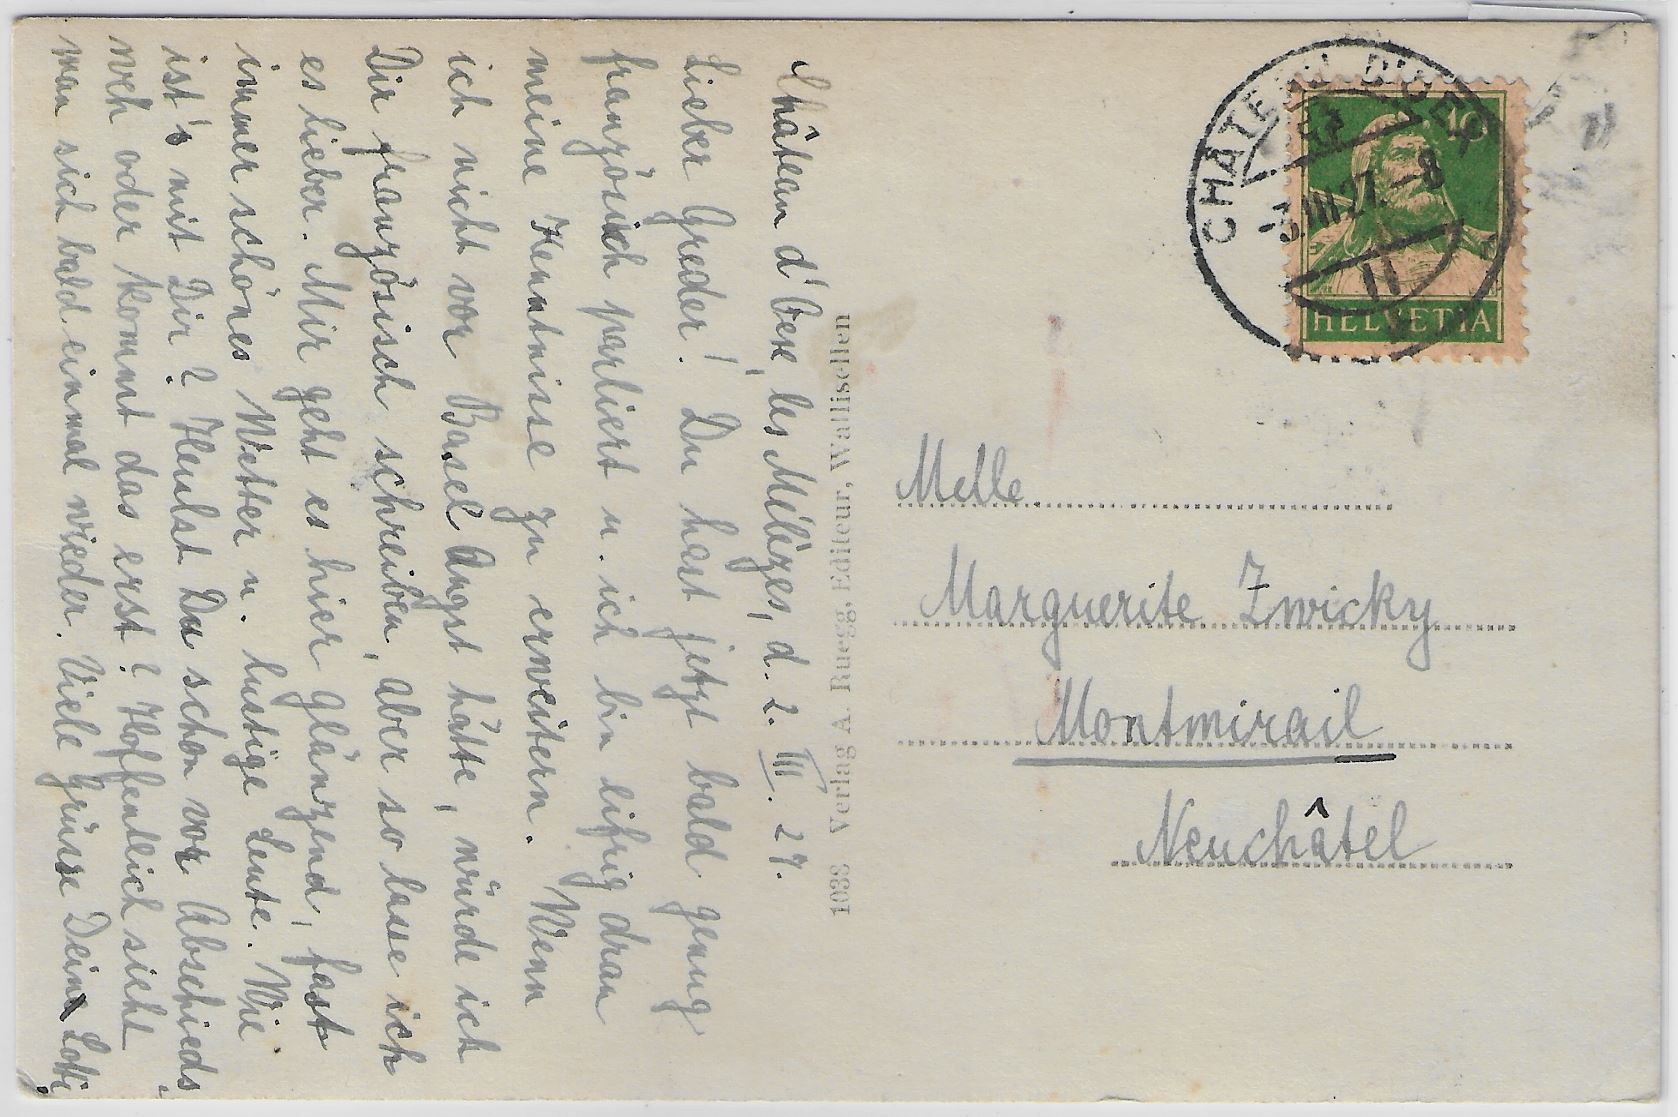 Château d'Oex, les Mélèzes, d. 2. III. 27.
Lieber Greder! Du hast jetzt bald genug
französich parliert u. ich bin eifrig dran
meine Kenntnisse zu erweitern. Wenn
ich nicht vor Basel Angst hätte, würde ich
Dir französisch schreiben, aber so lasse ich
es lieber. Mir geht es hier glänzend, fast
immer schönes Wetter u. lustige Leute. Wie
ist's mit Dir? Heulst Du schon vor Abschieds
weh oder kommt das erst? Hoffentlich sieht
man sich bald einmal wieder. Viele Grüsse Dein
1088 Verlag A. Ruegg, Editeur, Wallisellen
CHATEAU D'OEX
HELVETIA
10
Melle
Marguerite Zwicky
Montmirail
Neuchâtel